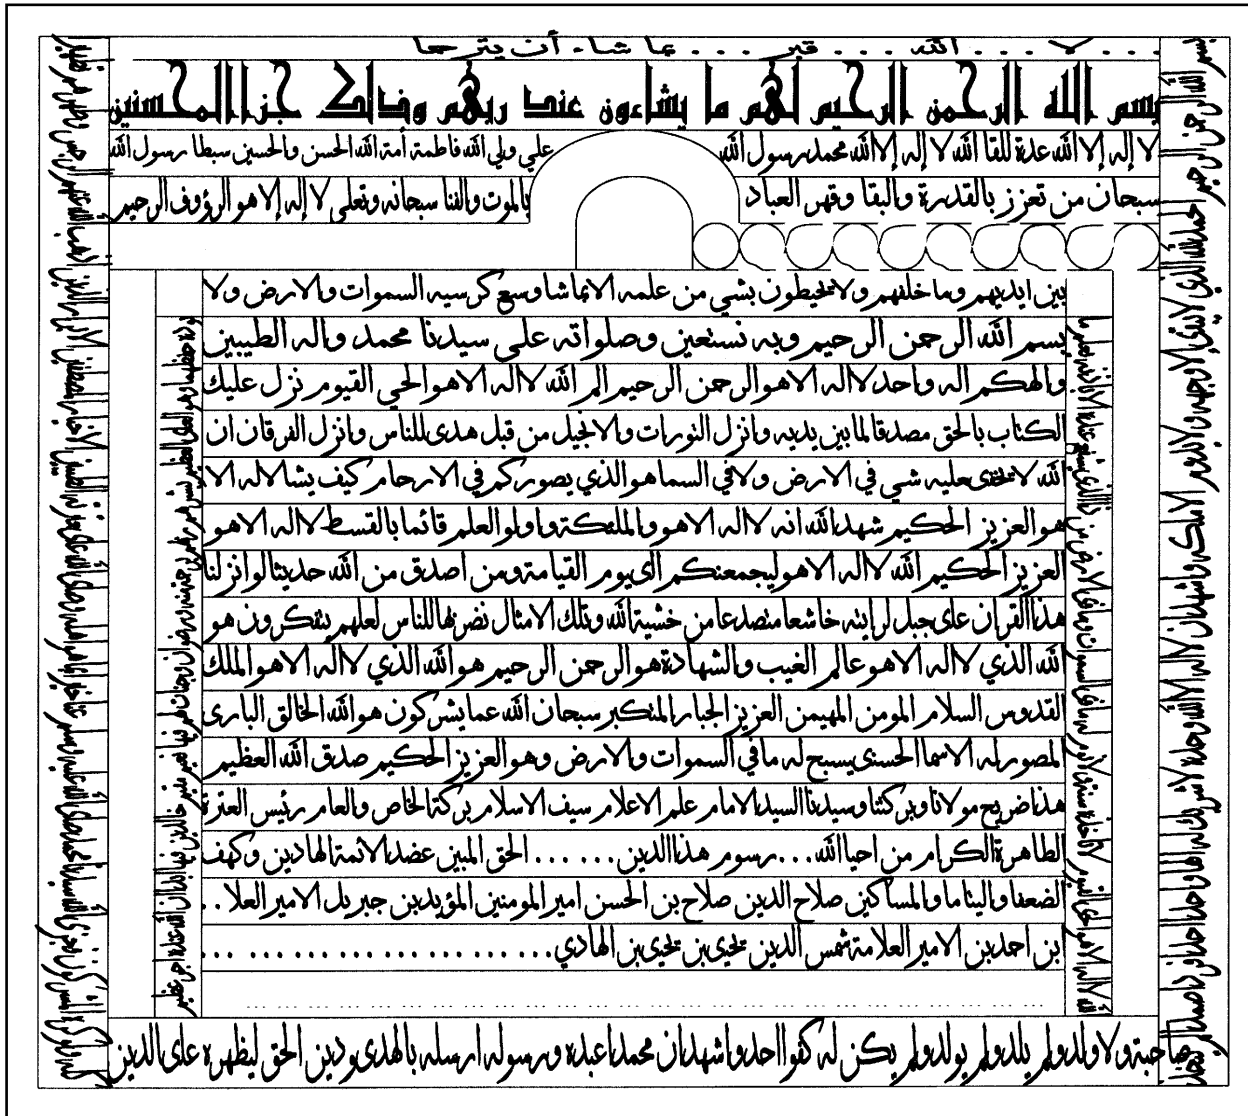 . . . لا . . . الله . . . قبر . . . ما شاء أن يترحما
بسم الله الرحمن الرحيم لهم ما يشاءون عند ربهم وذلك جزاالمحسنين
لا إله إلا الله عدة للقا الله لا إله إلا الله محمد رسول الله علي ولي الله فاطمة أمة الله الحسن والحسين سبطا رسول الله
سبحان من تعزز بالقدرة والبقا وقهر العباد بالموت والفنا سبحانه وتعلى لا إله إلا هو الرؤوف الرحيم
بين ايديهم وما خلفهم ولا يحيطون بشي من علمه الا بما شا وسع كرسيه السموات والارض ولا
بسم الله الرحمن الرحيم وبه نستعين وصلواته على سيدنا محمد واله الطيبين
والهكم اله واحد لا اله الا هو الرحمن الرحيم الم الله لا اله الا هو الحي القيوم نزل عليك
الكتاب بالحق مصدقا لما بين يديه وانزل التورات والانجيل من قبل هدى للناس وانزل الفرقان ان
الله لا يخفى عليه شي في الارض ولا في السما هو الذي يصوركم في الارحام كيف يشا لا اله الا
هو العزيز الحكيم شهد الله انه لا اله الا هو والملئكة واولو العلم قائما بالقسط لا اله الا هو
العزيز الحكيم الله لا اله الا هو ليجمعنكم الى يوم القيامة ومن اصدق من الله حديثا لو انزلنا
هذا القران على جبل لرايته خاشعا متصدعا من خشية الله وتلك الامثال نضربها للناس لعلهم يتفكرون هو
الله الذي لا اله الا هو عالم الغيب والشهادة هو الرحمن الرحيم هو الله الذي لا اله الا هو الملك
القدوس السلام المومن المهيمن العزيز الجبار المتكبر سبحان الله عما يشركون هو الله الخالق البارى
المصور له الاسما الحسنى يسبح له ما في السموات والارض وهو العزيز الحكيم صدق الله العظيم
هذا ضريح مولانا وبركتنا وسيدنا السيد الامام علم الاعلام سيف الاسلام بركة الخاص والعام رئيس العترة
الطاهرة الكرام من احيا الله... رسوم هذا الدين. . . . . . الحق المبين عضد الائمة الهادين وكهف
الضعفا واليتاما والمساكين صلاح الدين صلاح بن الحسن امير المومنين المؤيد بن جبريل الامير العلا . .
بن احمد بن الامير العلامة شمس الدين يحيى بن يحيى بن الهادي. . . . . . . . . . . . . . . . . .
الله لا اله الا هو الحي القيوم لا تاخذه سنة ولا نوم له ما في السموات وما في الارض من ذا الذي يشفع عنده الا باذنه يعلم ما
يوده حفظهما وهو العلي العظيم يبشرهم ربهم برحمة منه ورضوان وجنات لهم فيها نعيم مقيم خالدين فيها ابدا ان الله عنده اجر عظيم
صاحبة ولا ولد ولم يلد ولم يولد ولم يكن له كفوا احد واشهد ان محمدا عبده ورسوله ارسله بالهدى ودين الحق ليظهره على الدين
كله ولو كره المشركون